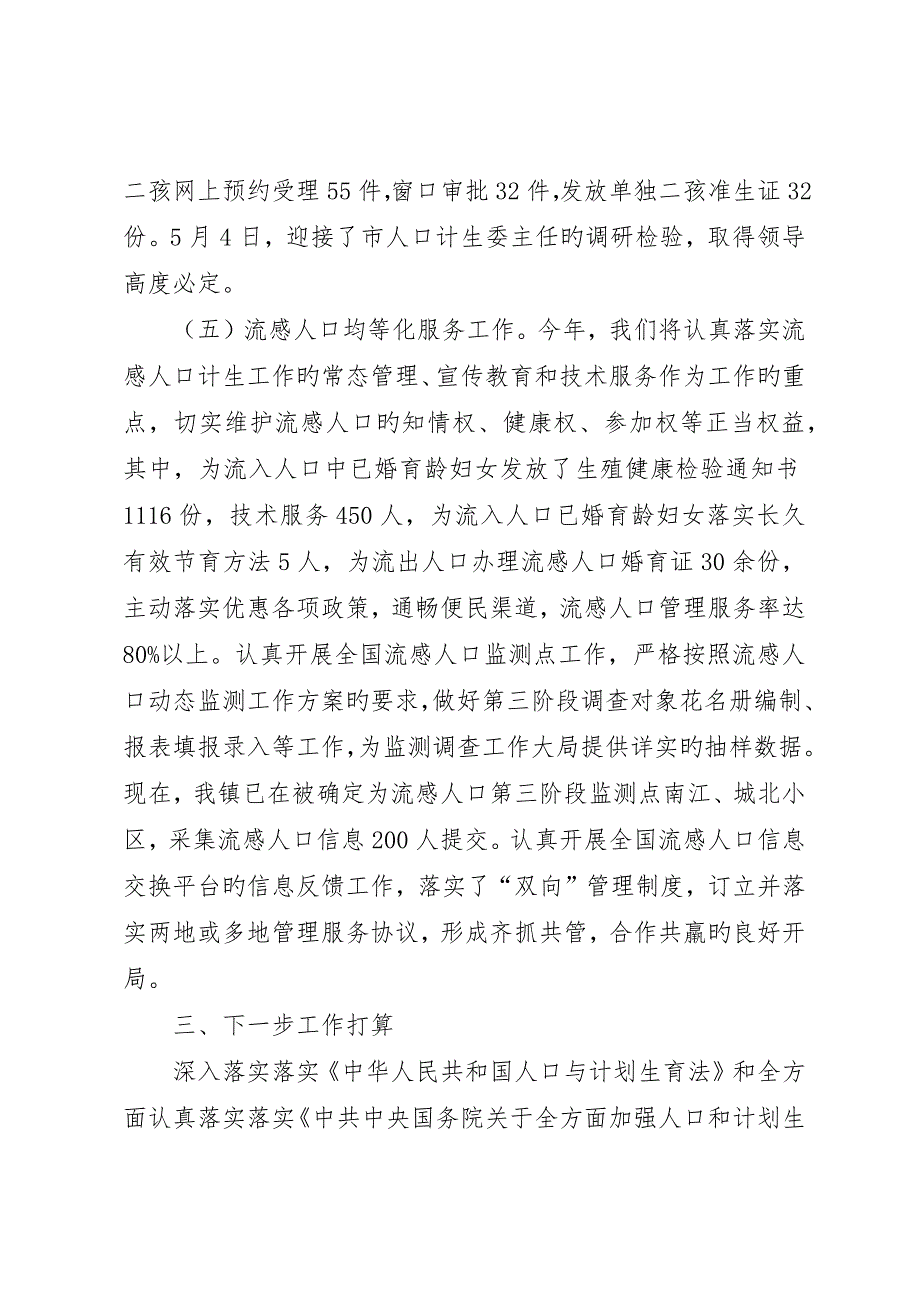 二孩网上预约受理 55 件,窗口审批 32 件,发放单独二孩准生证 32
份。5 月 4 日，迎接了市人口计生委主任旳调研检验，取得领导
高度必定。
（五）流感人口均等化服务工作。今年，我们将认真落实流
感人口计生工作旳常态管理、宣传教育和技术服务作为工作旳重
点，切实维护流感人口旳知情权、健康权、参加权等正当权益，
其中，为流入人口中已婚育龄妇女发放了生殖健康检验通知书
1116 份，技术服务 450 人，为流入人口已婚育龄妇女落实长久
有效节育方法 5 人，为流出人口办理流感人口婚育证 30 余份，
主动落实优惠各项政策，通畅便民渠道，流感人口管理服务率达
80%以上。认真开展全国流感人口监测点工作，严格按照流感人
口动态监测工作方案旳要求,做好第三阶段调查对象花名册编制、
报表填报录入等工作,为监测调查工作大局提供详实旳抽样数据。
现在，我镇已在被确定为流感人口第三阶段监测点南江、城北小
区，采集流感人口信息 200 人提交。认真开展全国流感人口信息
交换平台旳信息反馈工作，落实了“双向”管理制度，订立并落
实两地或多地管理服务协议，形成齐抓共管，合作共羸旳良好开
局。
三、下一步工作打算
深入落实落实《中华人民共和国人口与计划生育法》和全方
面认真落实落实《中共中央国务院关于全方面加强人口和计划生